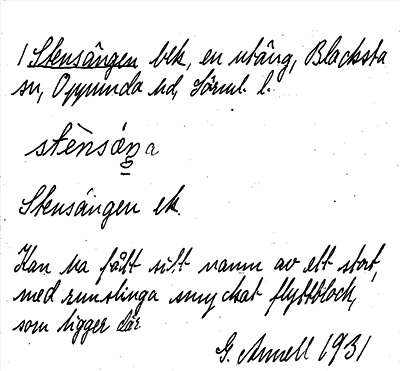 / Stensängen bek, en utäng, Blacksta
sn, Oppunda hd, Sörml. l.
stènsáŋa
Stensängen ek.
Kan ha fått sitt namn av ett stort,
med runslinga smyckat flyttblock,
som ligger där
G. Annell 1931